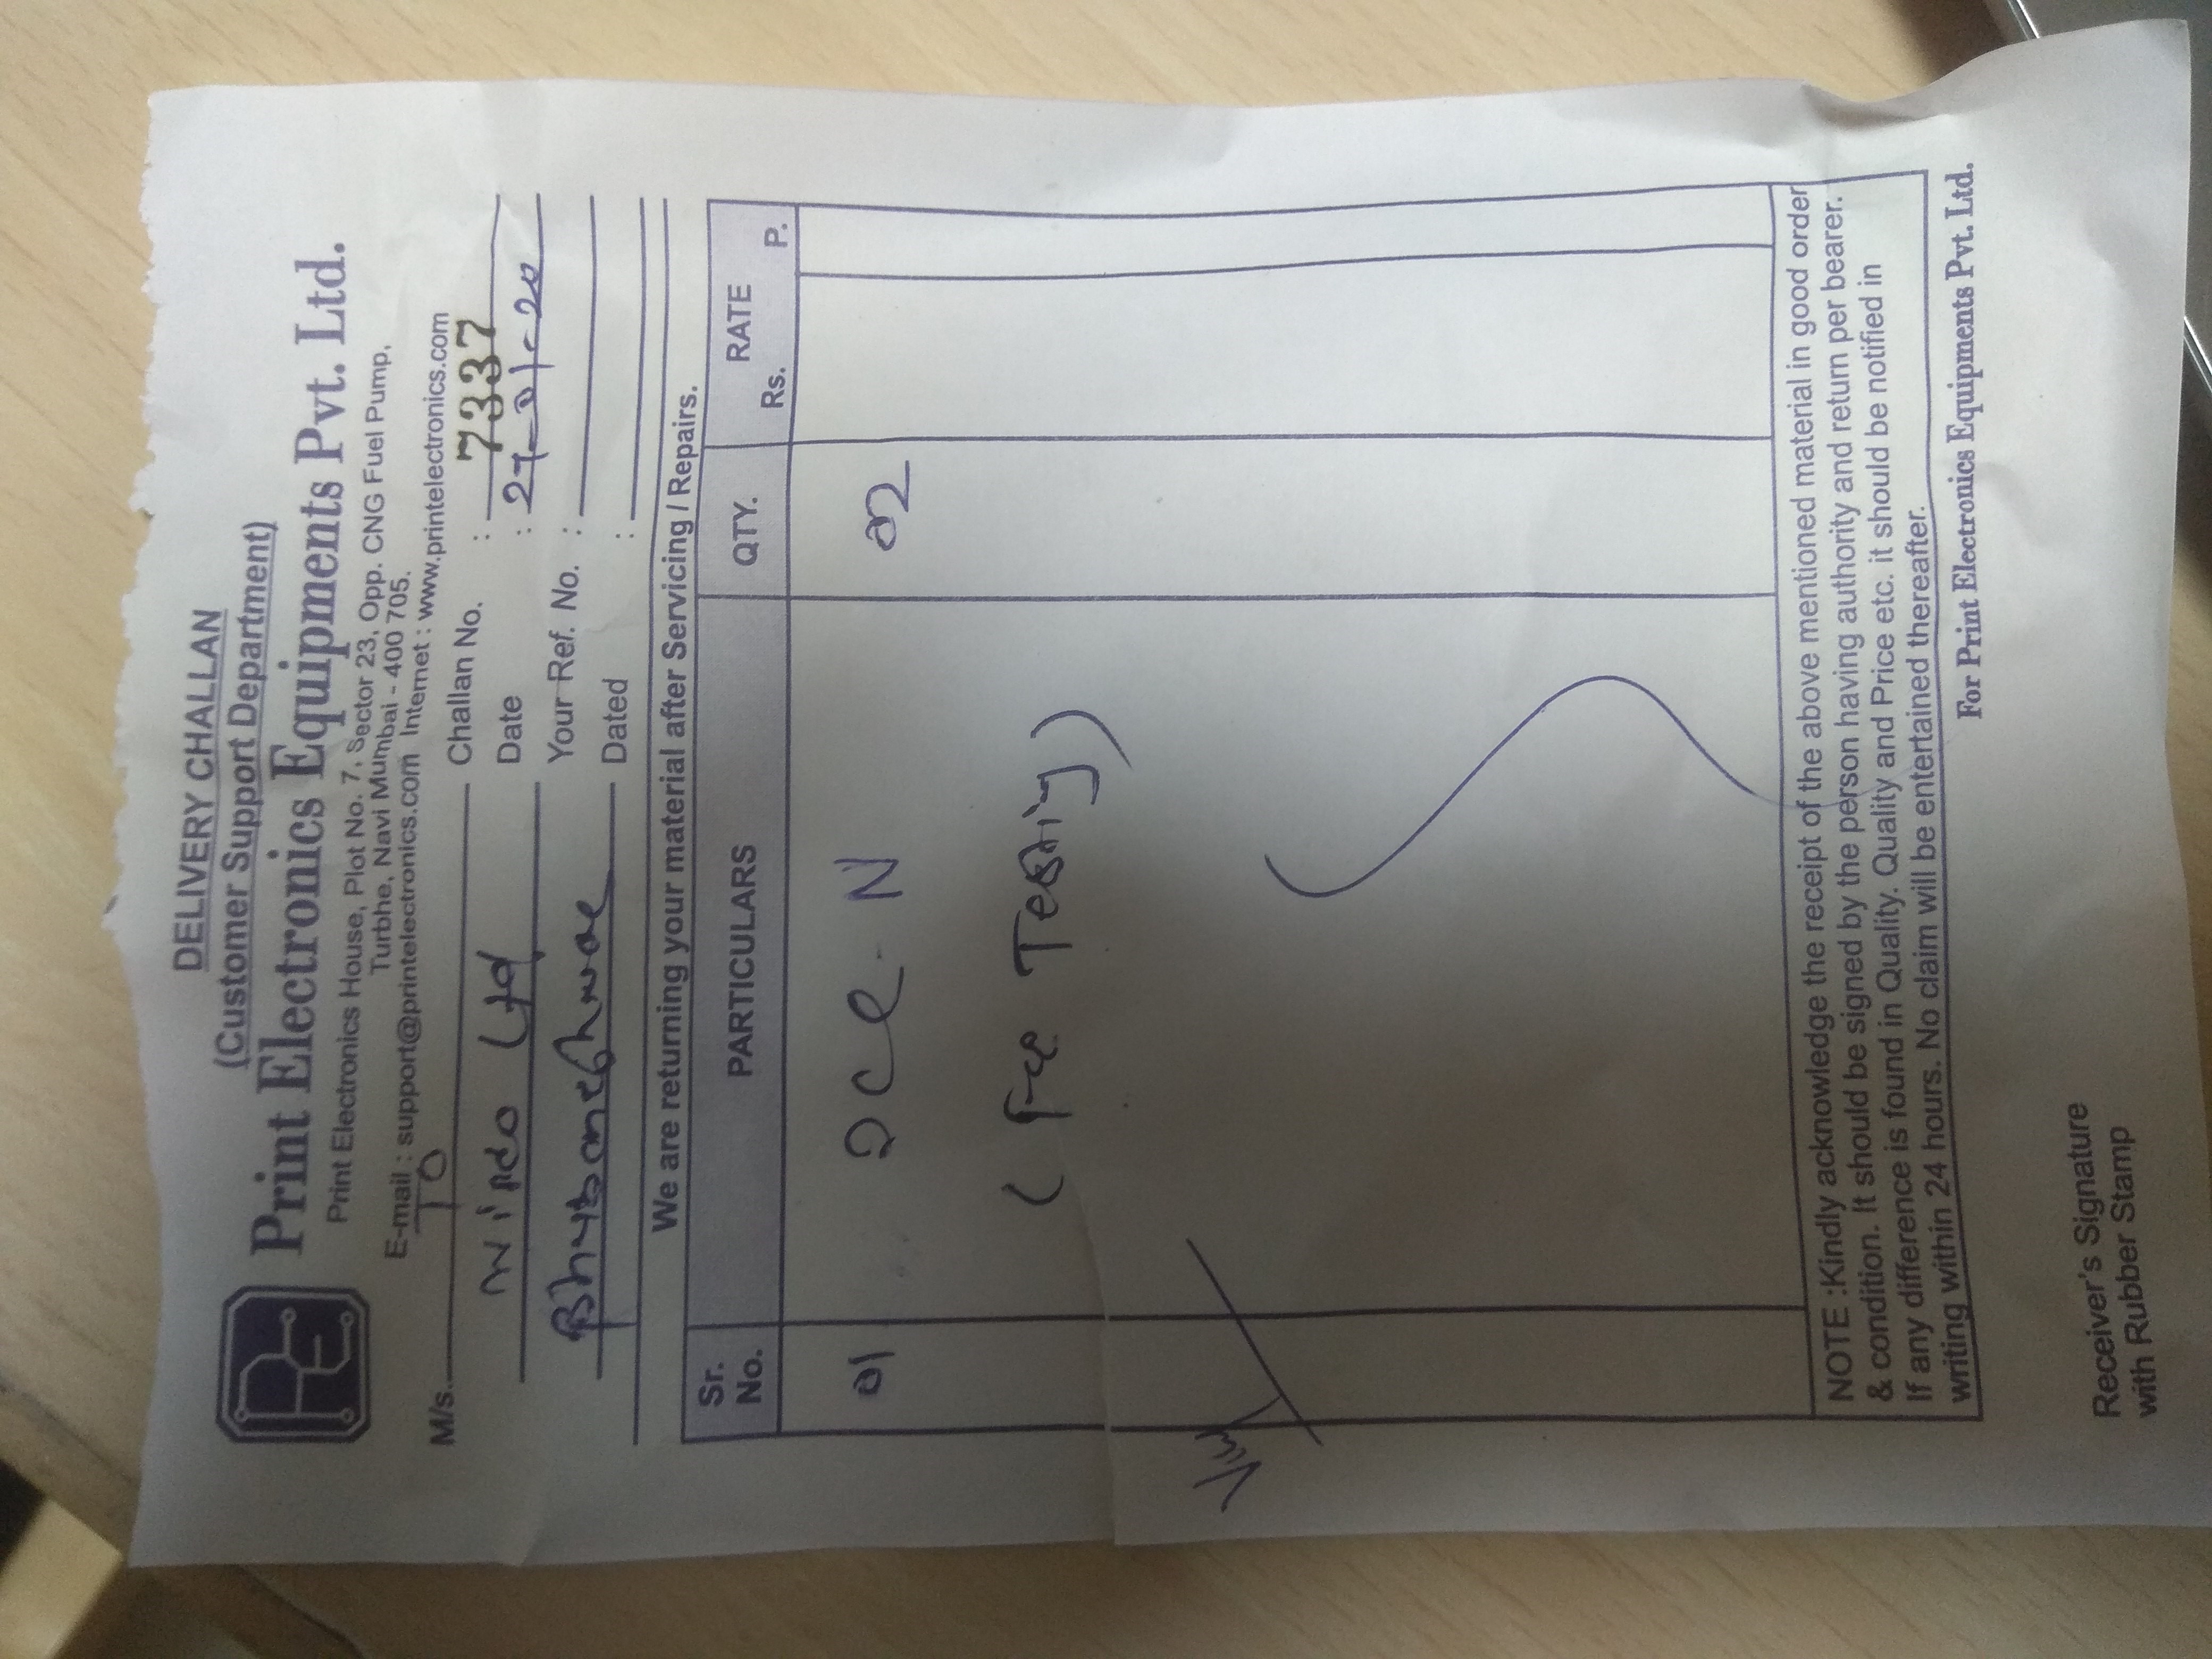 DELIVERY CHALLAN
(Customer Support Department)
Print Electronics Equipments Pvt. Ltd.
Print Electronics House, Plot No. 7, Sector 23, Opp. CNG Fuel Pump,
Turbhe, Navi Mumbai - 400 705.
E-mail : support@printelectronics.com Internet : www.printelectronics.com
M/s. TO
Challan No. : 7337
Ltd
Date : 27-01-20
Your Ref. No. :
Dated :
We are returning your material after Servicing / Repairs.
Sr. No. PARTICULARS QTY. RATE Rs. P.
01 N 02
Testing)
NOTE :Kindly acknowledge the receipt of the above mentioned material in good order
& condition. It should be signed by the person having authority and return per bearer.
If any difference is found in Quality. Quality and Price etc. it should be notified in
writing within 24 hours. No claim will be entertained thereafter.
For Print Electronics Equipments Pvt. Ltd.
Receiver's Signature
with Rubber Stamp